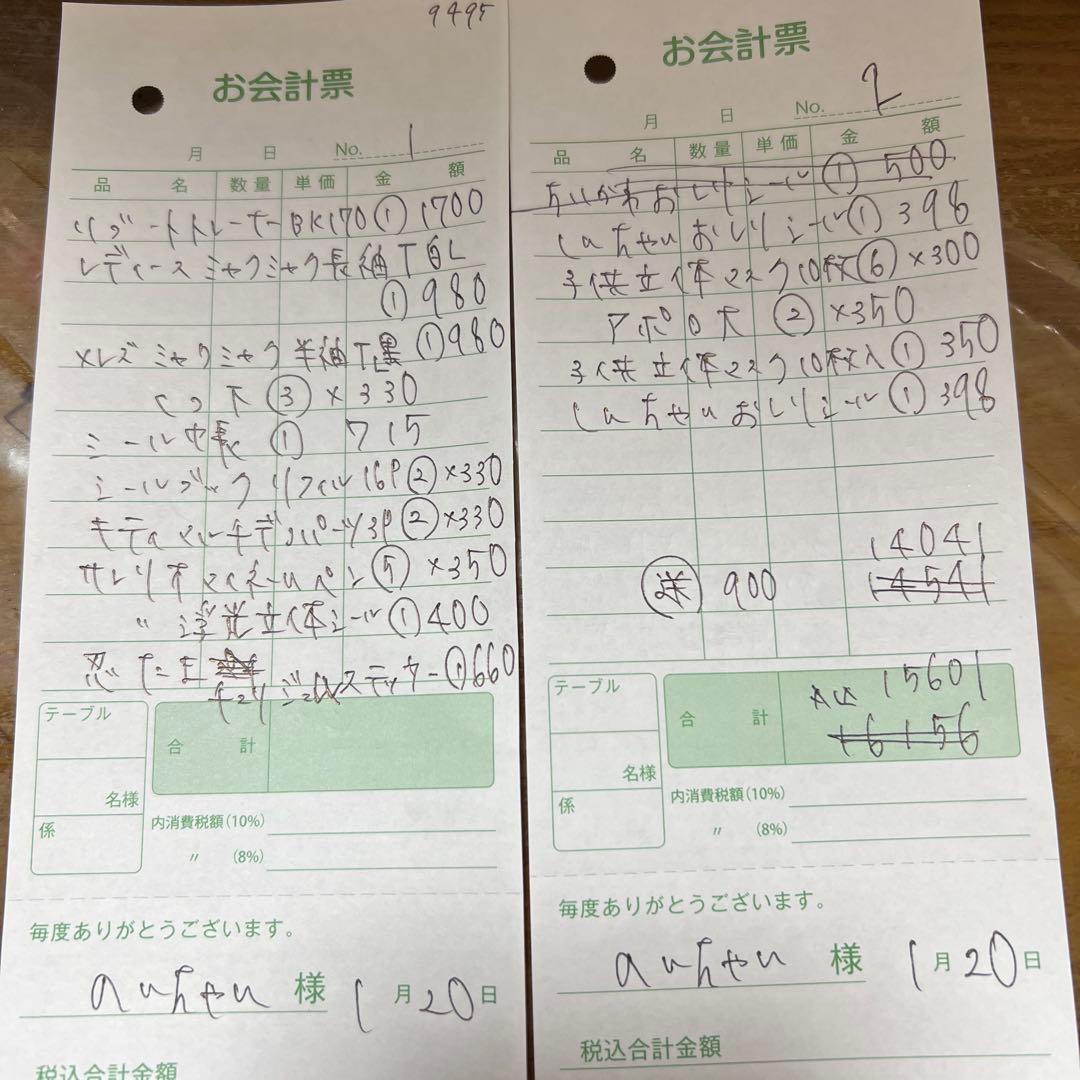 9495
お会計票
月 日 No. 1
品名 数量 単価 金額
トレーナーBK170① 1700
レディースシャクシャク長袖T白L
①980
メンズシャクシャク半袖T黒①980
くつ下③×330
シール中長① 715
シールブックリフィル16P②×330
キティマイパーツ3P②×330
サンリオマイネームペン⑤×350
〃 立体シール①400
忍たま ステッカー①660
テーブル
名様
係
合計
内消費税額(10%)
〃 (8%)
毎度ありがとうございます。
のんちゃん 様 1月20日
税込合計金額
お会計票
月 日 No. 2
品名 数量 単価 金額
ちいかわおしりシール①500
しんちゃんおしりシール①398
子供立体マスク10枚⑥×300
アポロ大②×350
子供立体マスク10枚入①350
しんちゃんおしりシール①398
14041
送 900 14541
テーブル
名様
係
合計
15601
16156
内消費税額(10%)
〃 (8%)
毎度ありがとうございます。
のんちゃん 様 1月20日
税込合計金額